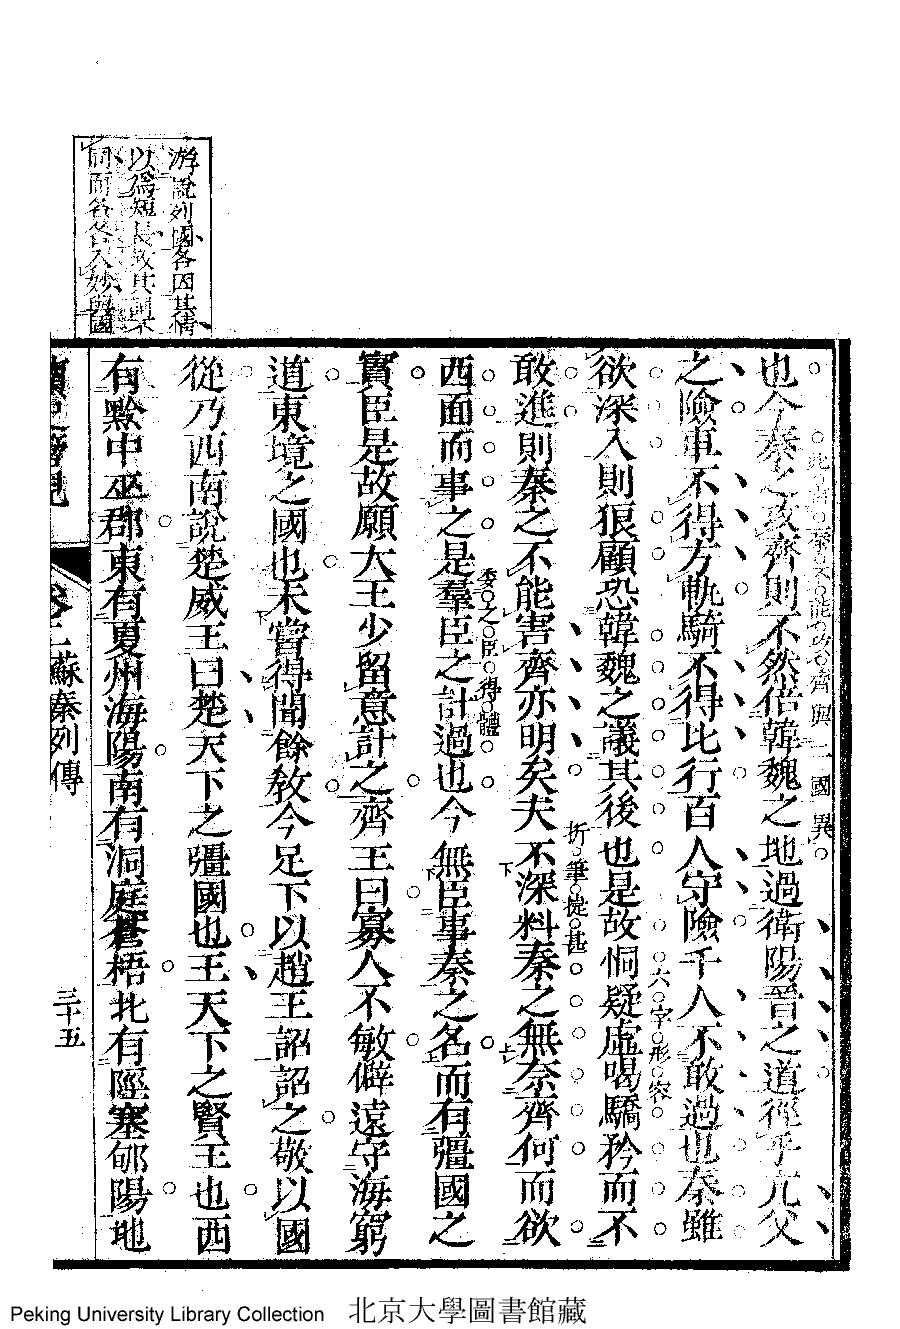 游說列國各因其情
以爲短長故其同
同而各各入妙與國
也今秦之攻齊則不然倍韓魏之地過衛陽晉之道徑乎亢父
與二國異
之險車不得方軌騎不得比行百人守險千人不敢過也秦雖
六字形容
欲深入則狼顧恐韓魏之議其後也是故恫疑虛喝驕矜而不
折筆從甚
敢進則秦之不能害齊亦明矣夫不深料秦之無奈齊何而欲
委之臣得體
西面而事之是羣臣之計過也今無臣事秦之名而有彊國之
實臣是故願大王少留意計之齊王曰寡人不敏僻遠守海窮
道東境之國也未嘗得聞餘敎今足下以趙王詔詔之敬以國
從乃西南說楚威王曰楚天下之彊國也王天下之賢王也西
有黔中巫郡東有夏州海陽南有洞庭蒼梧北有陘塞郇陽地
卷二蘇秦列傳
三十五
Peking University Library Collection 北京大學圖書館藏